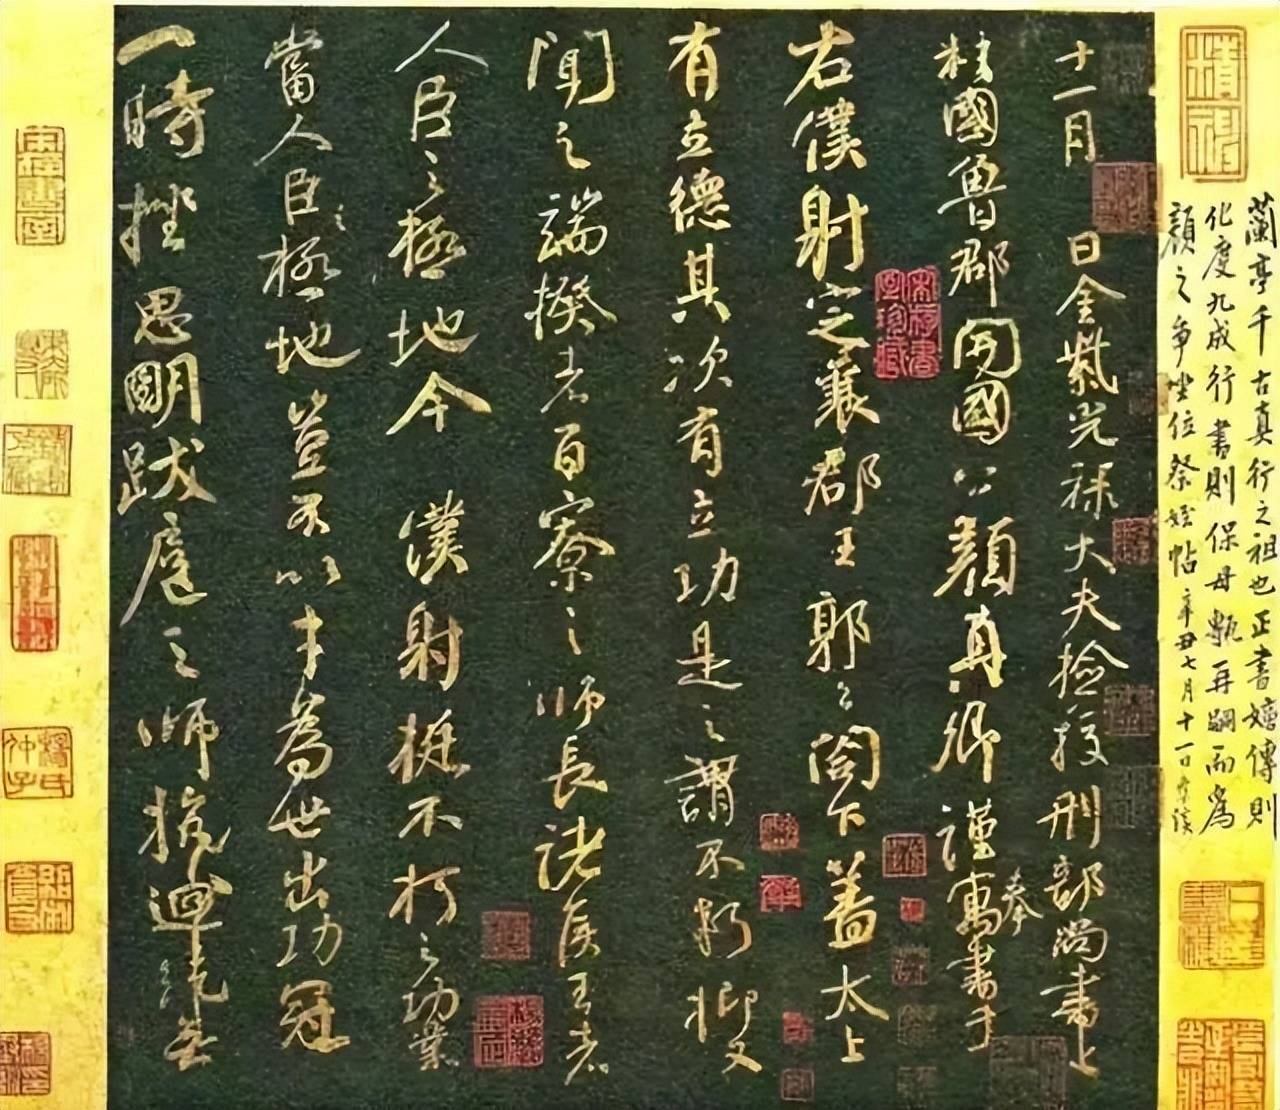 蘭亭千古真行之祖也正書嫡傳則
化度九成行書則保母甎再嗣而為
顏之爭坐位祭姪帖 辛丑七月十一日
十一月 日金紫光祿大夫檢挍刑部尚書上
柱國魯郡開國公顏真卿謹奉寓書于
右僕射定襄郡王郭公閤下蓋太上
有立德其次有立功是之謂不朽抑又
聞之端揆者百寮之師長諸侯王者
人臣之極地今 僕射挺不朽之功業
當人臣之極地豈不以才為世出功冠
一時挫思明跋扈之師抗迴紇無